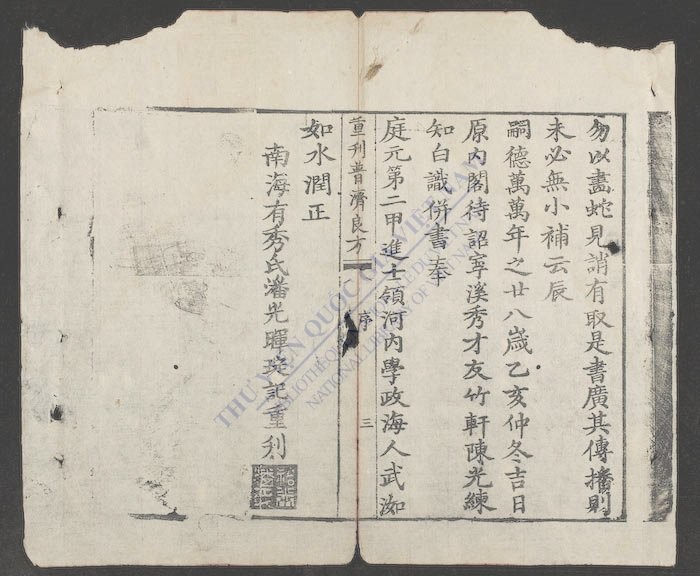 勿以畵蛇見誚有取是書廣其傳播則
未必無小補云辰
嗣德萬萬年之廿八歲乙亥仲冬吉日
原內閣待詔寜溪秀才友竹軒陳光練
知白識併書奉
庭元第二甲進士領河內學政海人武洳
重刋普濟良方
序
三
如水潤正
南海有秀氏潘光暉記重刋
THƯ VIỆN QUỐC GIA VIỆT NAM
BIBLIOTHEQUE NATIONALE DU VIETNAM
NATIONAL LIBRARY OF VIETNAM